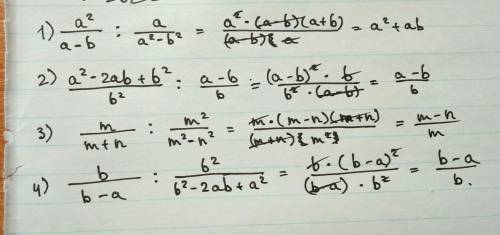 1) a²/(a-b) : a/(a²-b²) = (a²·(a-b)(a+b))/((a-b)·a) = a²+ab
2) (a²-2ab+b²)/b² : (a-b)/b = ((a-b)²·b)/(b²·(a-b)) = (a-b)/b
3) m/(m+n) : m²/(m²-n²) = (m·(m-n)(m+n))/((m+n)·m²) = (m-n)/m
4) b/(b-a) : b²/(b²-2ab+a²) = (b·(b-a)²)/((b-a)·b²) = (b-a)/b.